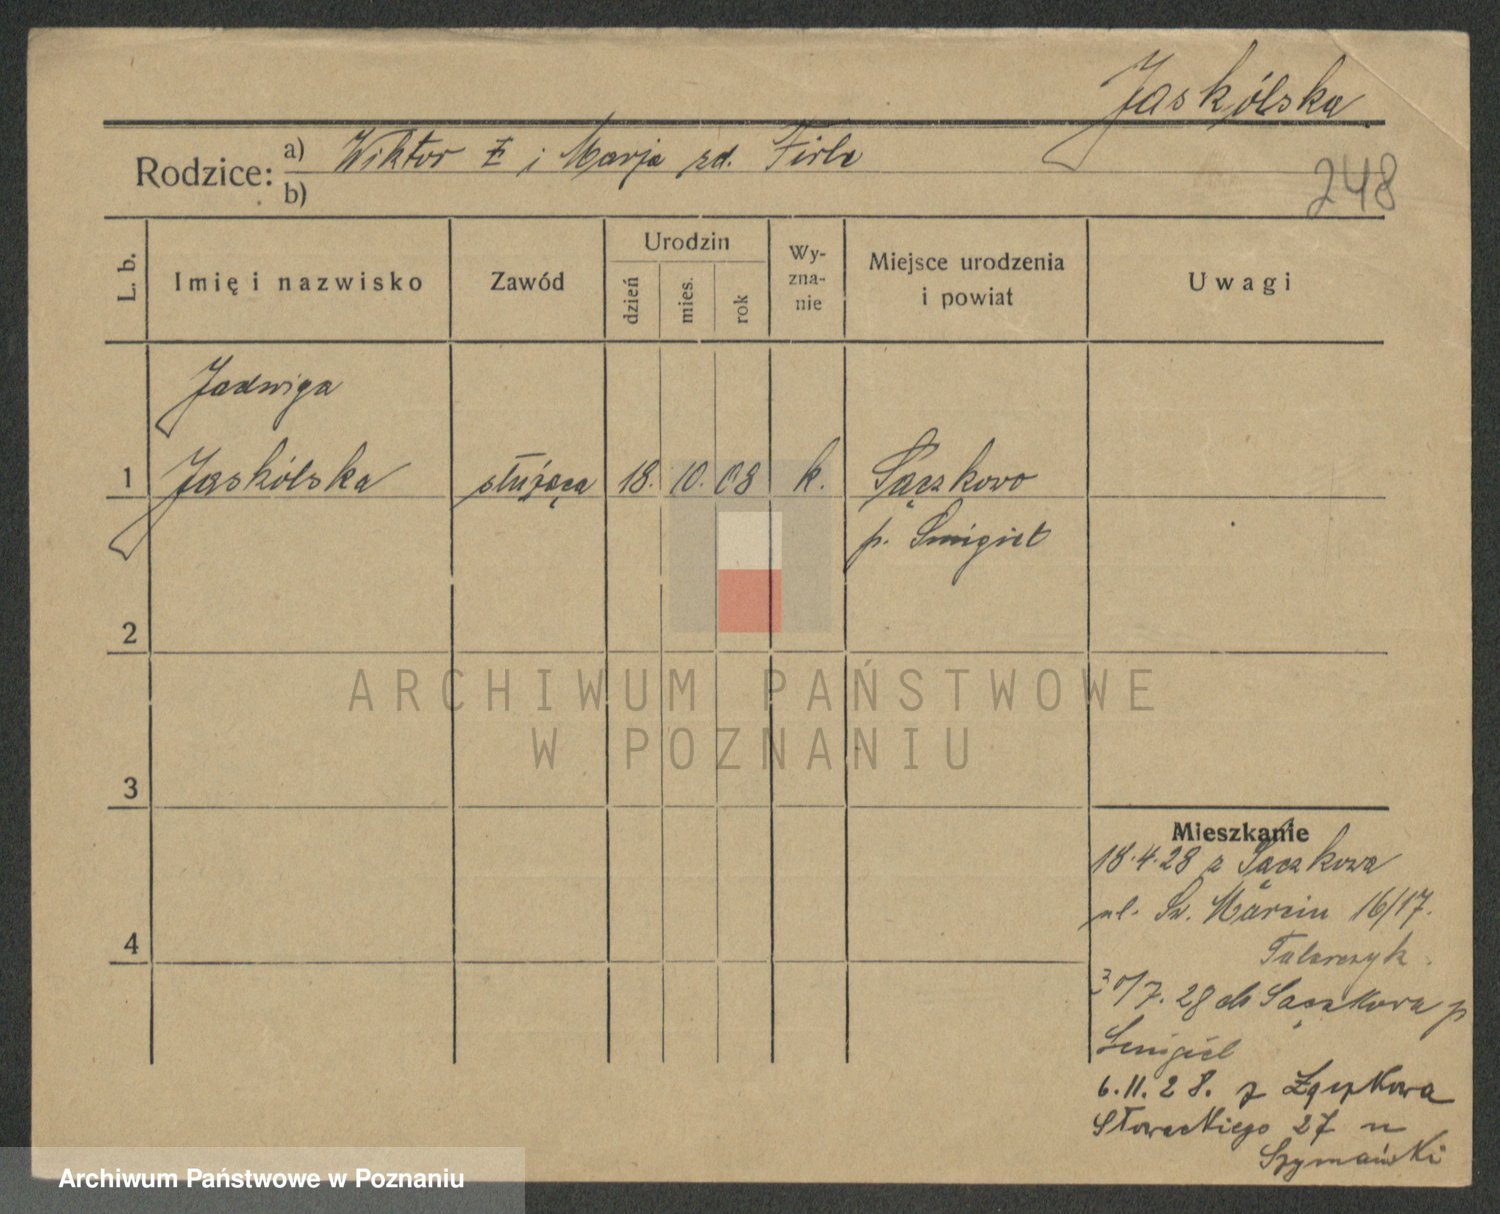 Jaskólska
Rodzice: a) Wiktor i Marja zd. Firle
b)
248
L. b.
Imię i nazwisko
Zawód
Urodzin
dzień
mies.
rok
Wy-
zna-
nie
Miejsce urodzenia
i powiat
Uwagi
Jadwiga
1 Jaskólska służąca 18. 10. 08 k. Sączkowo
p. Śmigiel
2
3
4
ARCHIWUM PAŃSTWOWE
W POZNANIU
Mieszkanie
18.4.28 z Sączkowa
ul. Św. Marcin 16/17.
Talarczyk.
30/7. 28 do Sączkowa p
Śmigiel
6.11.28. z
Słowackiego 27 u
Szymański
Archiwum Państwowe w Poznaniu